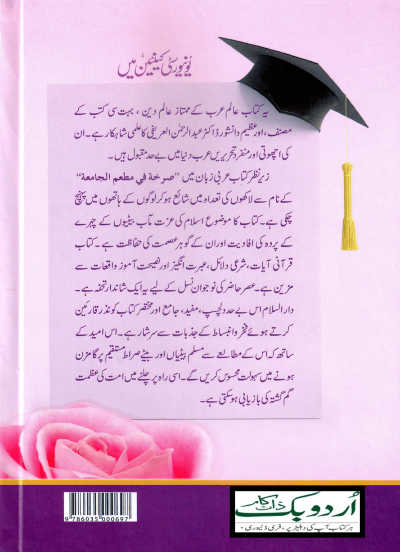 یونیورسٹی کینٹین میں
یہ کتاب عالمِ عرب کے ممتاز عالمِ دین، بہت سی کتب کے
مصنف، اور عظیم دانشور ڈاکٹر عبدالرحمٰن العریفی کا علمی شاہکار ہے۔ ان
کی اچھوتی اور منفرد تحریریں عرب دنیا میں بے حد مقبول ہیں۔
زیرِ نظر کتاب عربی زبان میں "صرخة في مطعم الجامعة"
کے نام سے لاکھوں کی تعداد میں شائع ہو کر لوگوں کے ہاتھوں میں پہنچ
چکی ہے۔ کتاب کا موضوع اسلام کی عزت مآب بیٹیوں کے چہرے
کے پردہ کی افادیت اور ان کے گوہرِ عصمت کی حفاظت ہے۔ کتاب
قرآنی آیات، شرعی دلائل، عبرت انگیز اور نصیحت آموز واقعات سے
مزین ہے۔ عصرِ حاضر کی نوجوان نسل کے لیے یہ ایک شاندار تحفہ ہے۔
دارالسلام اس بے حد دلچسپ، مفید، جامع اور مختصر کتاب کو نذرِ قارئین
کرتے ہوئے فخر و انبساط کے جذبات سے سرشار ہے۔ اس امید کے
ساتھ کہ اس کے مطالعے سے مسلم بیٹیاں اور بیٹے صراطِ مستقیم پر گامزن
ہونے میں سہولت محسوس کریں گے۔ اسی راہ پر چلنے میں امت کی عظمتِ
گم گشتہ کی بازیابی ہو سکتی ہے۔
اُردو بک ڈاٹ کام
ہر کتاب آپ کی دہلیز پر، فری ڈلیوری۔
9 786035 000697